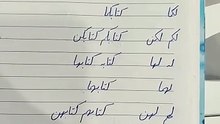 لكما كتابكما
لكم لكن كتابكم كتابكن
له لها كتابه كتابها
لهما كتابهما
لهم لهن كتابهم كتابهن